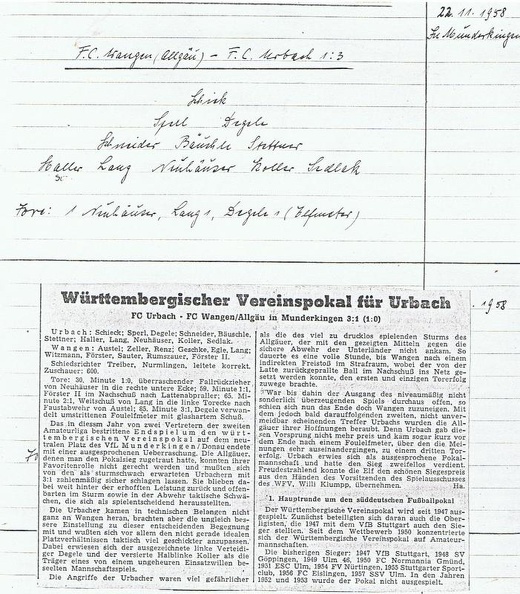 22.11.1958
F.C. Wangen (Allgäu) – F.C. Urbach 1:3
Schieck
Sperl Degele
Schneider Bäuchle Stettner
Haller Lang Neuhäuser Koller Sedlak
Tore: 1 Neuhäuser, Lang 1, Degele 1 (Elfmeter)
Württembergischer Vereinspokal für Urbach
FC Urbach - FC Wangen/Allgäu in Munderkingen 3:1 (1:0)
Urbach: Schieck; Sperl, Degele; Schneider, Bäuschle,
Stettner; Haller, Lang, Neuhäuser, Koller, Sedlak.
Wangen: Austel; Zeller, Renz; Geschke, Egle, Lang;
Witzmann, Förster, Sauter, Rumszauer, Förster II.
Schiedsrichter Treiber, Nurmlingen, leitete korrekt.
Zuschauer: 600.
Tore: 30. Minute 1:0, überraschender Fallrückzieher
von Neuhäuser in die rechte untere Ecke; 59. Minute 1:1,
Förster II im Nachschuß nach Lattenabpraller; 65. Mi-
nute 2:1, Weitschuß von Lang in die linke Torecke nach
Faustabwehr von Austel; 85. Minute 3:1, Degele verwan-
delt umstrittenen Foulelfmeter mit glashartem Schuß.
Das in diesem Jahr von zwei Vertretern der zweiten
Amateurliga bestrittene Endspiel um den würt-
tembergischen Vereinspokal auf dem neu-
tralen Platz des VfL Munderkingen/Donau endete
mit einer ausgesprochenen Ueberraschung. Die Allgäuer,
denen man den Pokalsieg zugetraut hatte, konnten ihrer
Favoritenrolle nicht gerecht werden und mußten sich
von den als sturmschwach erwarteten Urbachern mit
3:1 zahlenmäßig sicher schlagen lassen. Sie blieben da-
bei weit hinter der erhofften Leistung zurück und offen-
barten im Sturm sowie in der Abwehr taktische Schwä-
chen, die sich als spielentscheidend herausstellten.
Die Urbacher kamen in technischen Belangen nicht
ganz an Wangen heran, brachten aber die ungleich bes-
sere Einstellung zu dieser entscheidenden Begegnung
mit und wußten sich vor allem den nicht gerade idealen
Platzverhältnissen taktisch viel geschickter anzupassen.
Dabei erwiesen sich der ausgezeichnete linke Verteidi-
ger Degele und der versierte Halblinke Koller als die
Träger eines von einem ungeheuren Einsatzwillen be-
seelten Mannschaftsspiels.
Die Angriffe der Urbacher waren viel gefährlicher
als die des viel zu drucklos spielenden Sturms des
Allgäuer, der mit den gezeigten Mitteln gegen die
sichere Abwehr der Unterländer nicht ankam. So
dauerte es eine volle Stunde, bis Wangen nach einem
indirekten Freistoß im Strafraum, wobei der von der
Latte zurückgeprallte Ball im Nachschuß ins Netz ge-
setzt werden konnte, den ersten und einzigen Torerfolg
zuwege brachte.
War bis dahin der Ausgang des niveaumäßig nicht
sonderlich überzeugenden Spiels durchaus offen, so
schien sich nun das Ende doch Wangen zuzuneigen. Mit
dem jedoch bald darauffolgenden zweiten, nicht unver-
meidbar scheinenden Treffer Urbachs wurden die All-
gäuer ihrer Hoffnungen beraubt. Denn Urbach gab die-
sen Vorsprung nicht mehr preis und kam sogar kurz vor
dem Ende nach einem Foulelfmeter, über den die Mei-
nungen sehr auseinandergingen, zu einem dritten Tor-
erfolg. Urbach erwies sich als ausgesprochene Pokal-
mannschaft und hatte den Sieg zweifellos verdient.
Freudestrahlend konnte die Elf den schönen Siegespreis
aus den Händen des Vorsitzenden des Spielausschusses
des WFV, Willi Klumpp, übernehmen. Ha.
1. Hauptrunde um den süddeutschen Fußballpokal
Der Württembergische Vereinspokal wird seit 1947 aus-
gespielt. Zunächst beteiligten sich daran auch die Ober-
ligisten, die 1947 mit dem VfB Stuttgart auch den Sie-
ger stellten. Seit dem Wettbewerb 1950 konzentrierte
sich der Württembergische Vereinspokal auf Amateur-
mannschaften.
Die bisherigen Sieger: 1947 VfB Stuttgart, 1948 SV
Göppingen, 1949 Ulm 46, 1950 FC Normannia Gmünd,
1951 ESC Ulm, 1954 FV Nürtingen, 1955 Stuttgarter Sport-
club, 1956 FC Eislingen, 1957 SSV Ulm. In den Jahren
1952 und 1953 wurde der Pokal nicht ausgespielt.